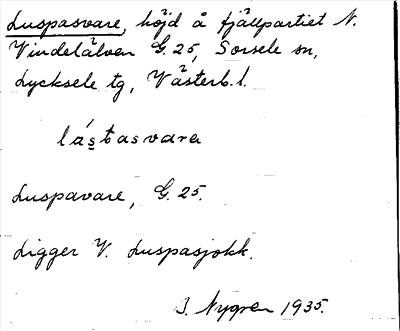 Luspasvare, höjd å fjällpartiet N.
Vindelälven G. 25, Sorsele sn,
Lycksele tg, Västerb. l.
lástasvara
Luspavare, G. 25.
Ligger V. Luspasjokk.
I. Nygren 1935.